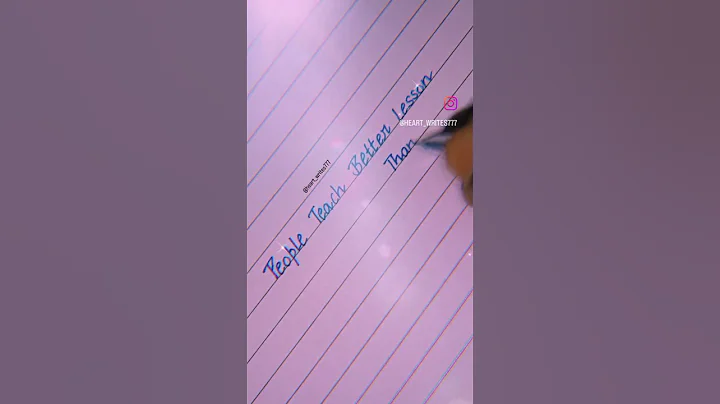 People Teach Better Lesson
Than
@HEART_WRITES777
@heart_writes777